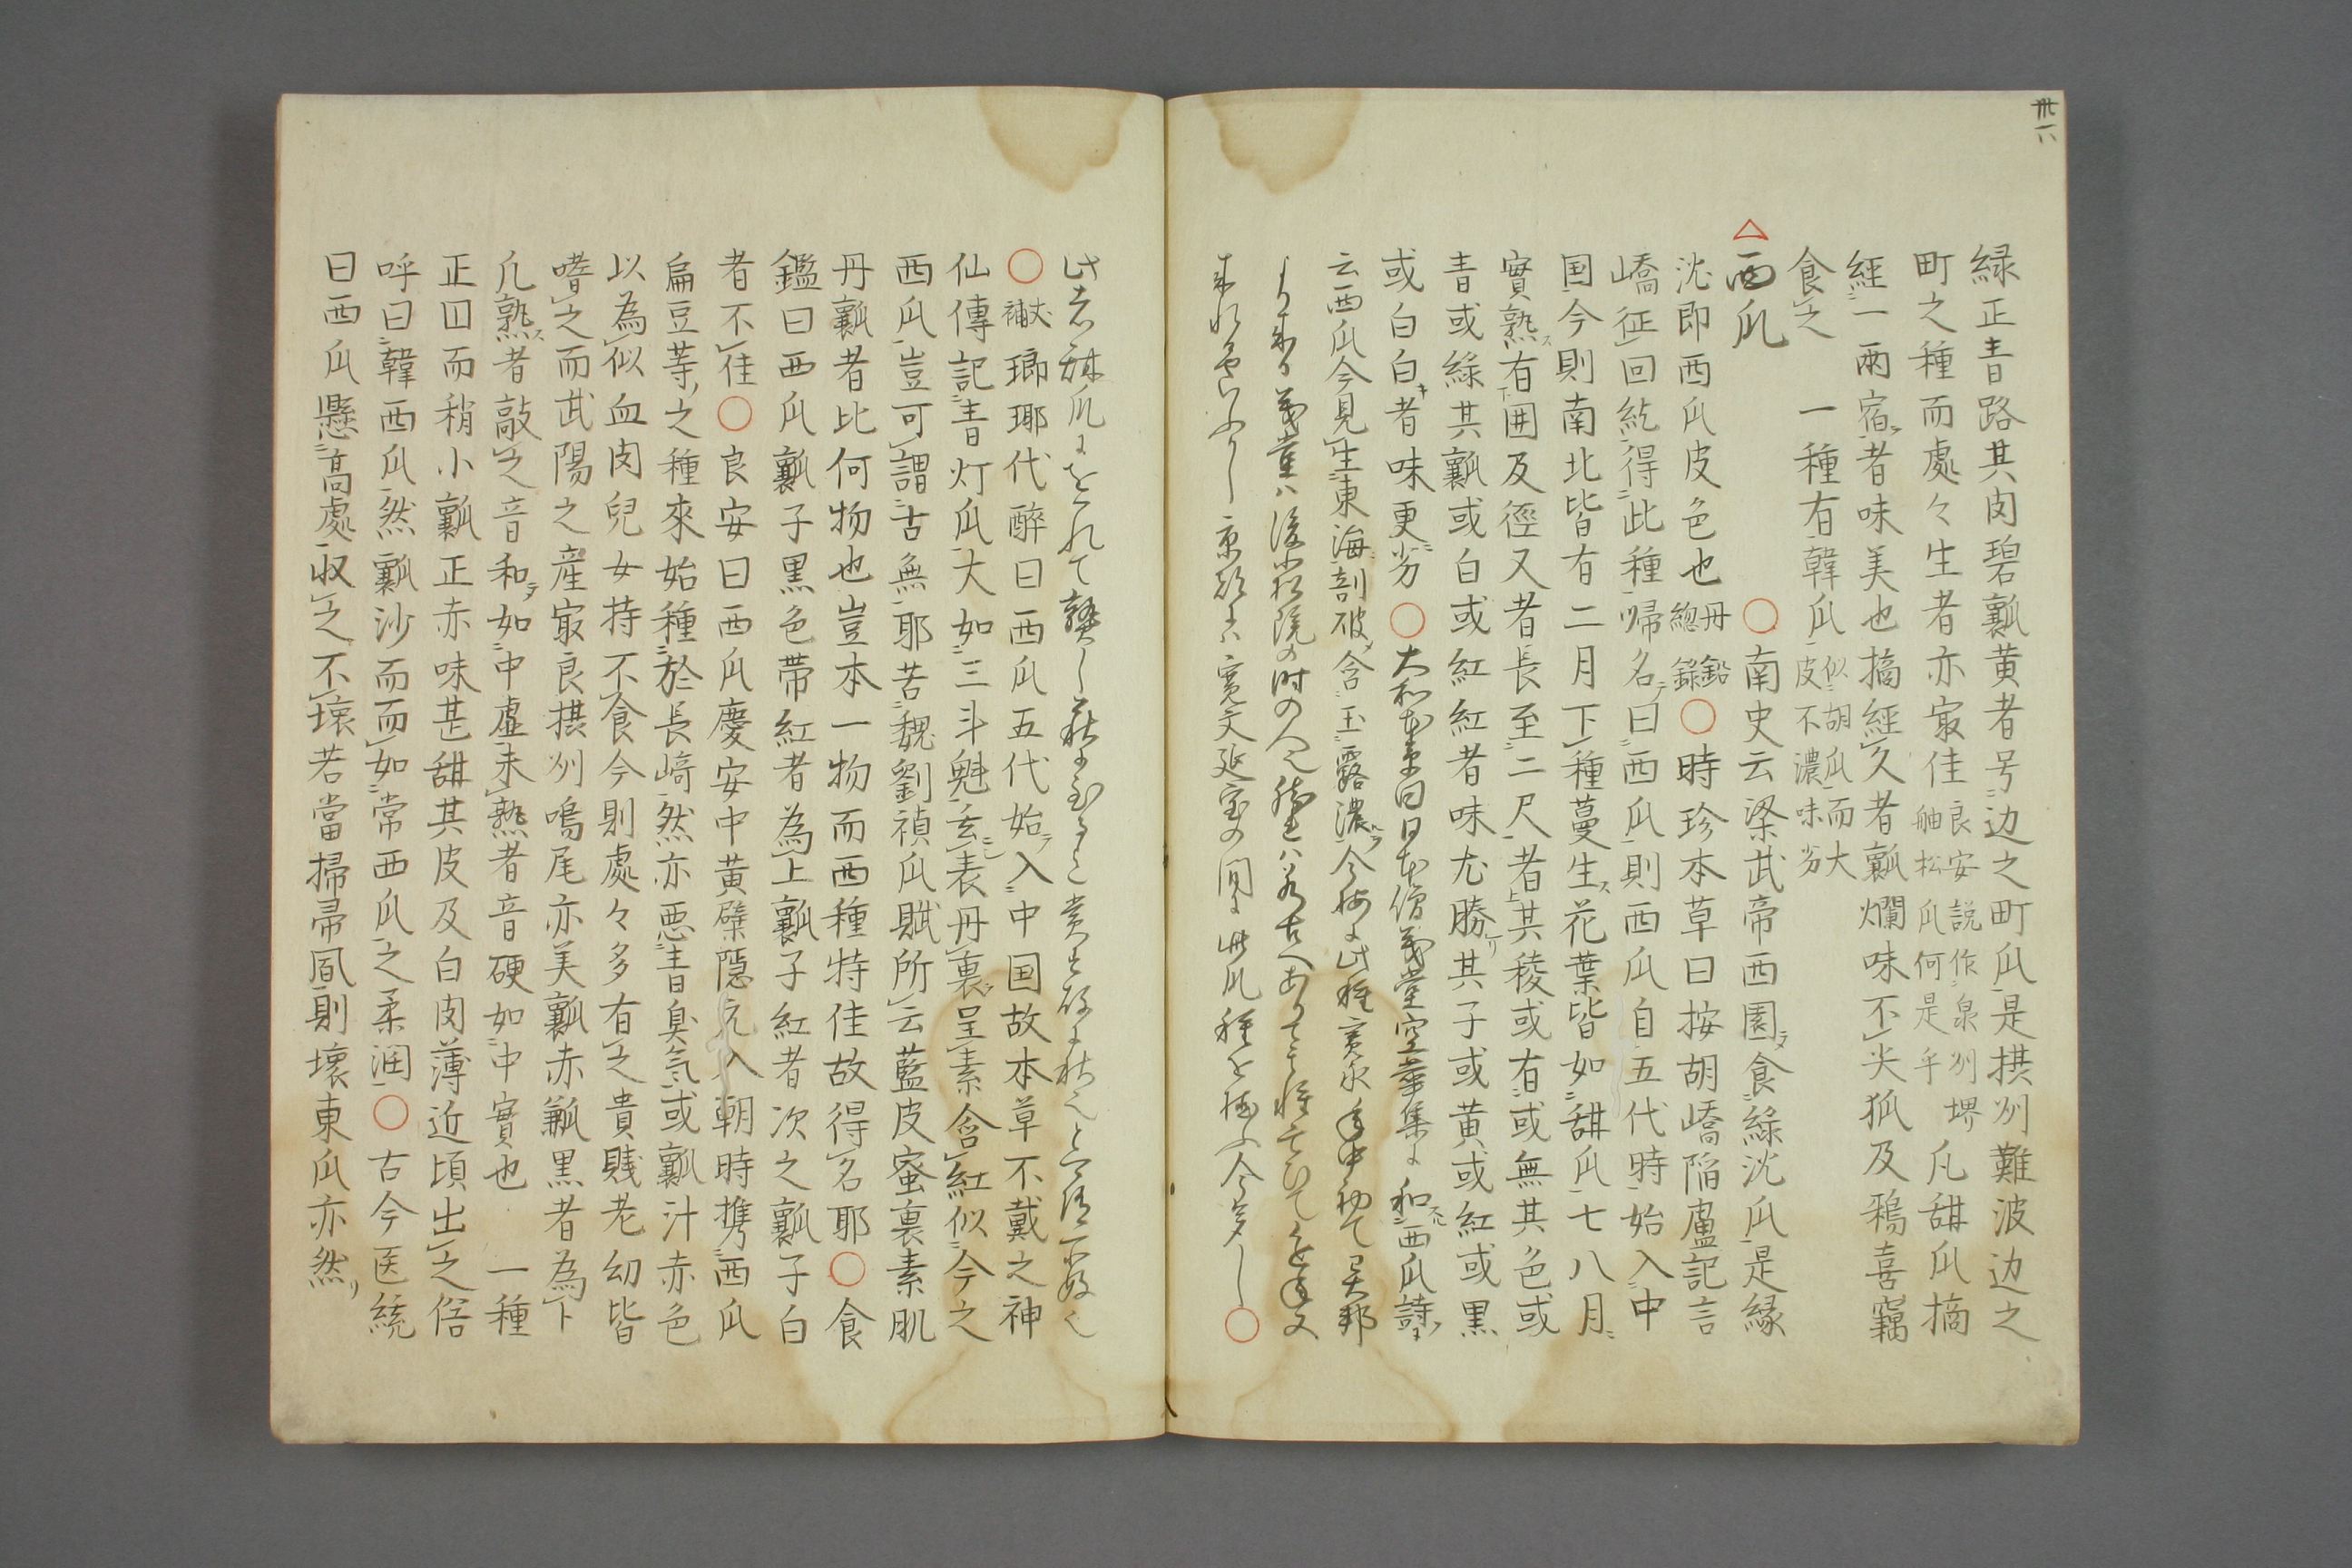 卅六
緑正青路其肉碧瓤黄者号边之町瓜是摂州難波边之
町之種而處々生者亦㝡佳良安説作泉州堺舳松瓜何是乎凡甜瓜摘
經一両宿者味美也摘經久者瓤爛味不尖狐及鴉喜竊
食之 一種有韓瓜似胡瓜而大皮不濃味劣
△西瓜 ○南史云梁武帝西園食綠沈瓜是緑
沈即西瓜皮色也丹鉛総錄○時珍本草曰按胡嶠陥盧記言
嶠征回紇得此種帰名曰西瓜則西瓜自五代時始入中
国今則南北皆有二月下種蔓生花葉皆如甜瓜七八月
實熟有囲及徑又者長至二尺者其稜或有或無其色或
青或綠其瓤或白或紅紅者味尤勝其子或黄或紅或黒
或白白者味更劣○大和本草曰日本僧義堂空華集ニ和西瓜詩
云西瓜今見生東海剖破含玉露濃今按ニ此種寛永年中初て異邦
より来る義堂ハ後小松院の時の人
来れるなるべし京都にハ寛文延宝の間に此瓜種を植ふ今多し○
○丈補瑯琊代醉曰西瓜五代始入中国故本草不載之神
仙傳記青灯瓜大如三斗魁玄表丹裏呈素含紅似今之
西瓜豈可謂古無耶若魏劉禎瓜賦所云藍皮蜜裏素肌
丹瓤者比何物也豈本一物而西種特佳故得名耶○食
鑑曰西瓜瓤子黒色帯紅者為上瓤子紅者次之瓤子白
者不佳○良安曰西瓜慶安中黄檗隠元入朝時携西瓜
扁豆等之種來始種於長﨑然亦悪青臭気或瓤汁赤色
以為似血肉兒女持不食今則處々多有之貴賎老幼皆
嗜之而武陽之産㝡良摂州鳴尾亦美瓤赤瓤黒者為下
凡熟者敲之音和如中虚未熟者音硬如中實也 一種
正囗而稍小瓤正赤味甚甜其皮及白肉薄近頃出之俗
呼曰韓西瓜然瓤沙而而如常西瓜之柔润○古今医統
曰西瓜懸高處収之不壞若當掃帚風則壞東瓜亦然